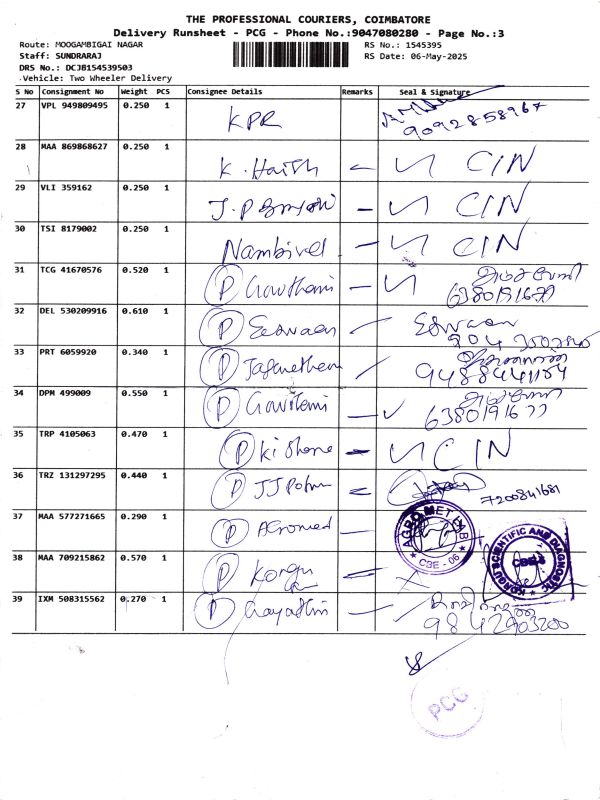 THE PROFESSIONAL COURIERS, COIMBATORE
Delivery Runsheet - PCG - Phone No.:9047080280 - Page No.:3
Route: MOOGAMBIGAI NAGAR
RS No.: 1545395
Staff: SUNDRARAJ
RS Date: 06-May-2025
DRS No.: DCJB154539503
Vehicle: Two Wheeler Delivery
S No Consignment No Weight PCS Consignee Details Remarks Seal & Signature
27 VPL 949809495 0.250 1 KPR 9092858967
28 MAA 869868627 0.250 1 K. Harish CIN
29 VLI 359162 0.250 1 J.P CIN
30 TSI 8179002 0.250 1 Nambivel CIN
31 TCG 41670576 0.520 1 P Gowthami 6380191677
32 DEL 530209916 0.610 1 P Eswaran Eswaran 904
33 PRT 6059920 0.340 1 P Jaganathan
34 DPM 499009 0.550 1 P Gowthami 6380191677
35 TRP 4105063 0.470 1 P Kishore CIN
36 TRZ 131297295 0.440 1 P JJ 7200841681
37 MAA 577271665 0.290 1 P Agromed AGRO MET LAB CBE - 06
38 MAA 709215862 0.570 1 P Kongu SCIENTIFIC AND DIAGNOSTIC
39 IXM 508315562 0.270 1 P Gayathri 9842903200
PCG